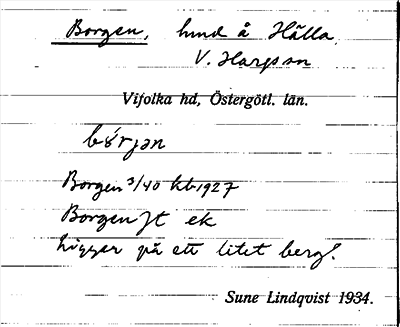 Borgen, hmd å Hålla,
V. Harg sn
Vifolka hd, Östergötl. län.
bórjan
Borgen 3/40 kb 1927
Borgen Jt ek
Ligger på ett litet berg.
Sune Lindqvist 1934.